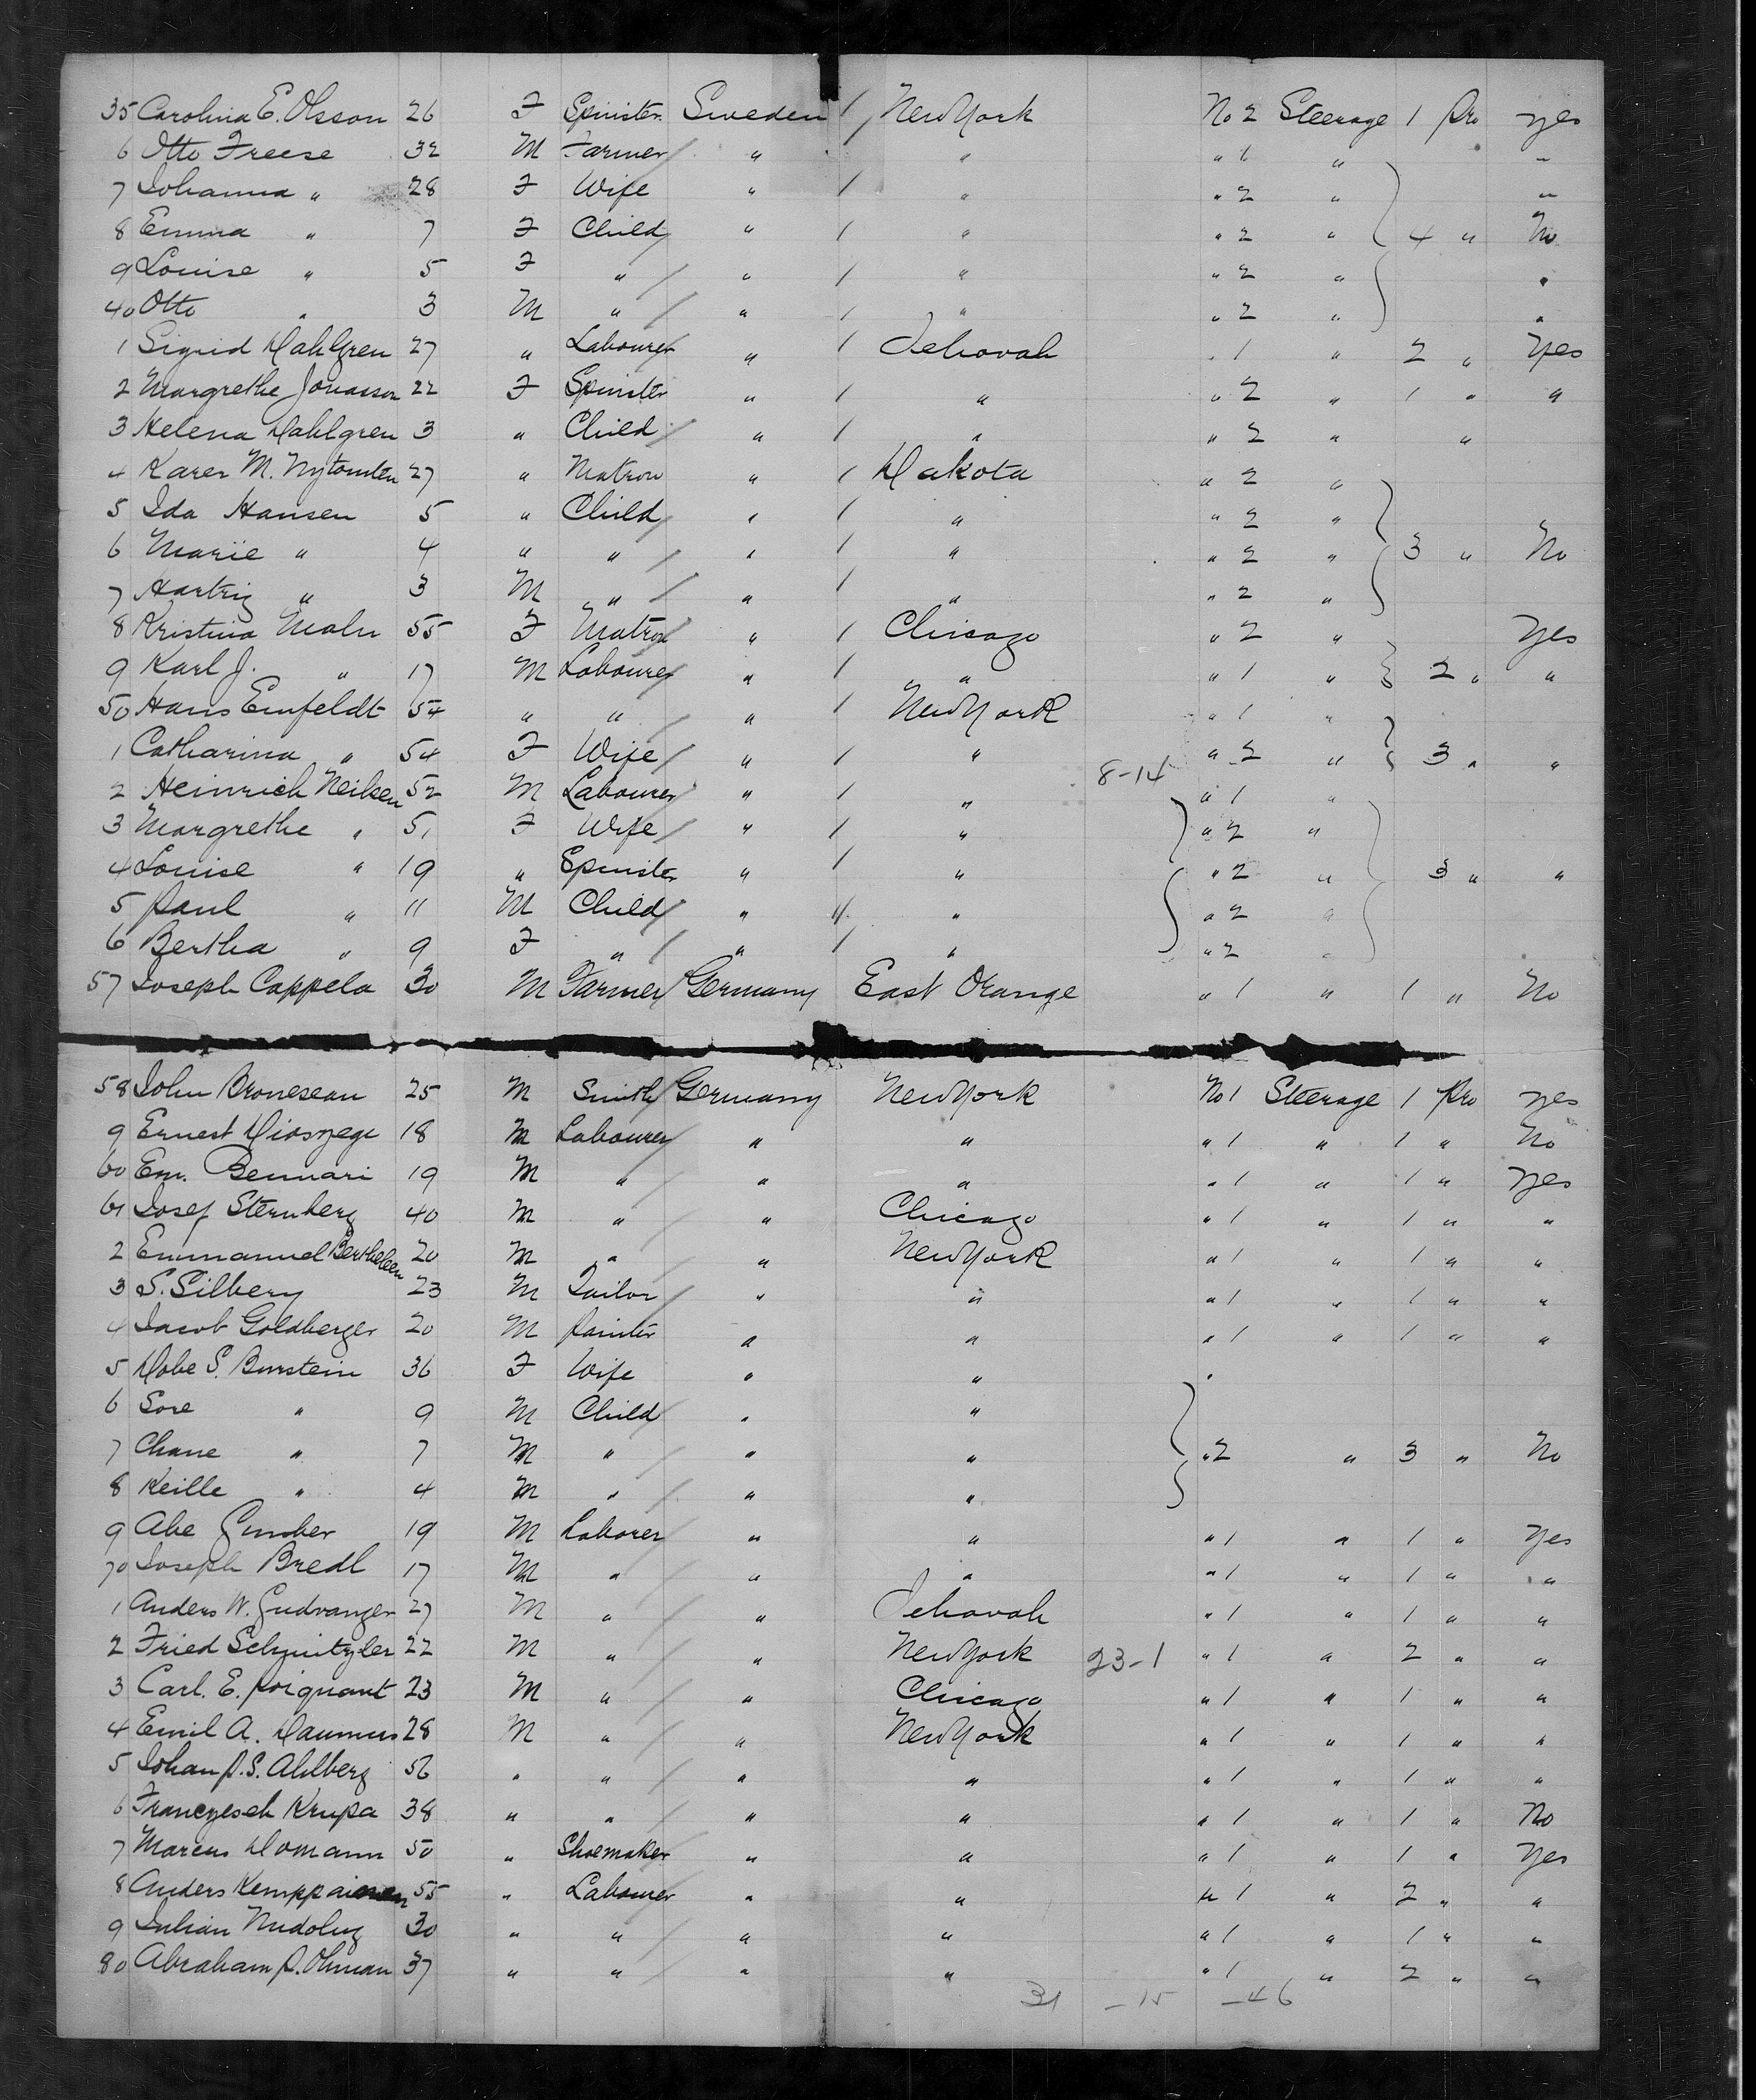 35 Carolina E. Olsson 26 F Spinster Sweden 1 New York No 2 Steerage 1 Pro yes
6 Otto Freese 32 M Farmer " " " 1 " "
7 Johanna " 28 F Wife " 1 " " 2 " "
8 Emma " 7 F Child " 1 " " 2 " 4 " No
9 Louise " 5 F " " 1 " " 2 " "
40 Otto " 3 M " " 1 " " 2 " "
1 Sigrid Dahlgren 27 " Labourer " 1 Jehovah " 1 " 2 " Yes
2 Margrethe Jonasson 22 F Spinster " 1 " " 2 " 1 " "
3 Helena Dahlgren 3 " Child " 1 " " 2 " "
4 Karen M. Nytomten 27 " Matron " 1 Dakota " 2 "
5 Ida Hansen 5 " Child " 1 " " 2 "
6 Marie " 4 " " " 1 " " 2 " 3 " No
7 Hartvig " 3 M " " 1 " " 2 "
8 Kristina Malm 55 F Matron " 1 Chicago " 2 " Yes
9 Karl J. " 17 M Labourer " 1 " " 1 " 2 " "
50 Hans Emfeldt 54 " " " 1 New York " 1 "
1 Catharina " 54 F Wife " 1 " " 2 " 3 " "
2 Heinrich Neilsen 52 M Labourer " 1 " 8-14 " 1 "
3 Margrethe " 51 F Wife " 1 " " 2 "
4 Louise " 19 " Spinster " 1 " " 2 " 3 " "
5 Paul " 11 M Child " 1 " " 2 "
6 Bertha " 9 F " " 1 " " 2 "
57 Joseph Cappela 30 M Farmer Germany East Orange " 1 " 1 " No
58 John Broneseau 25 M Smith Germany New York No 1 Steerage 1 Pro yes
9 Ernest Dioszege 18 M Labourer " " " 1 " 1 " No
60 Em. Bennari 19 M " " " " 1 " 1 " Yes
61 Josef Sternberg 40 M " " Chicago " 1 " 1 " "
2 Emmanuel 20 M " " New York " 1 " 1 " "
3 S. Silbery 23 M Tailor " " " 1 " 1 " "
4 Jacob Goldberger 20 M Painter " " " 1 " 1 " "
5 Dobe S. Burstein 36 F Wife " " "
6 Sore " 9 M Child " "
7 Chane " 7 M " " " " 2 " 3 " No
8 Keille " 4 M " " "
9 Abe Gunber 19 M Laborer " " " 1 " 1 " Yes
70 Joseph Bredl 17 M " " " " 1 " 1 " "
1 Anders W. Gudvanger 27 M " " Jehovah " 1 " 1 " "
2 Fried Schnitzler 22 M " " New York 23-1 " 1 " 2 " "
3 Carl. E. Poignant 23 M " " Chicago " 1 " 1 " "
4 Emil A. Daumus 28 M " " New York " 1 " 1 " "
5 Johan P. S. Ahlberg 56 " " " " " 1 " 1 " "
6 Franczesch Krupa 38 " " " " " 1 " 1 " No
7 Marcus Domann 50 " Shoemaker " " " 1 " 1 " Yes
8 Anders Kemppainen 55 " Labourer " " " 1 " 2 " "
9 Julian 30 " " " " " 1 " 1 " "
80 Abraham P. Ohman 37 " " " " " 1 " 2 " "
31 - 15 - 46